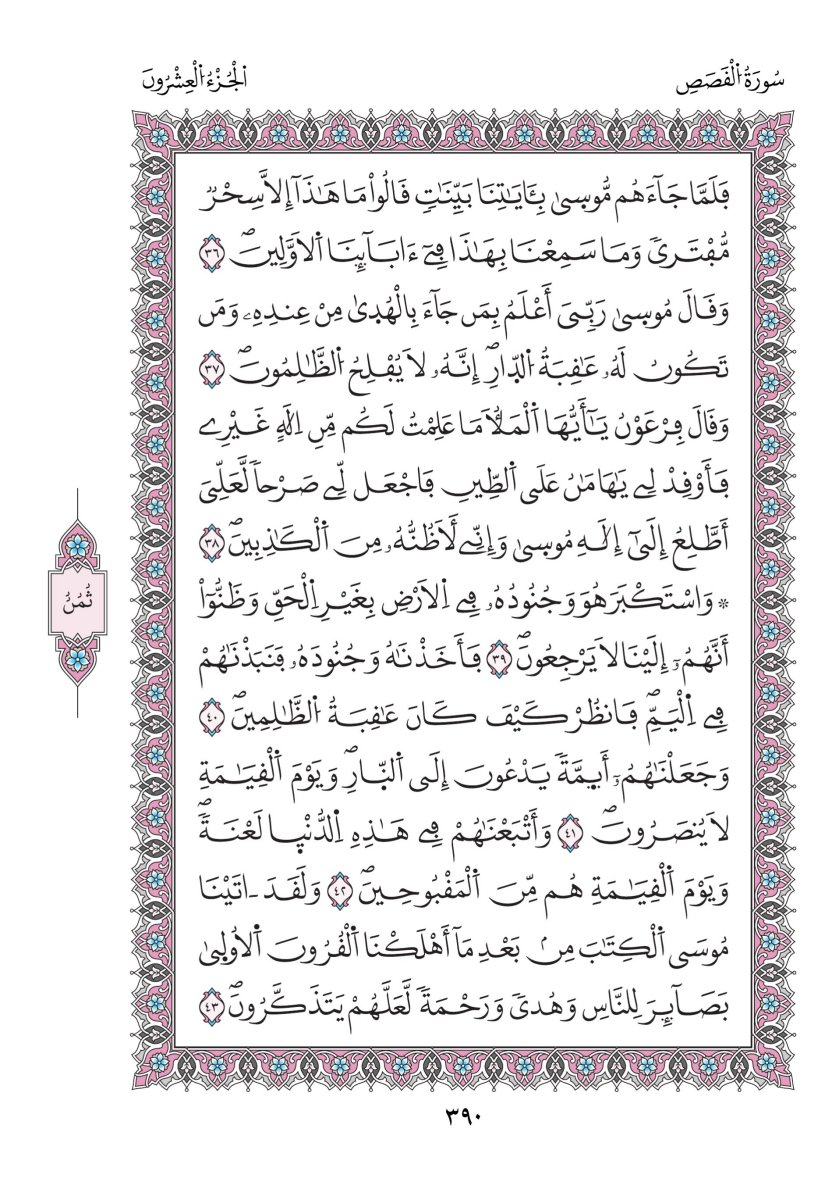 سُورَةُ اُ۬لْقَصَصِ
اَ۬لْجُزْءُ اُ۬لْعِشْرُونَ
فَلَمَّا جَآءَهُم مُّوسىٰ بِـَٔايَٰتِنَا بَيِّنَٰتٖ قَالُواْ مَا هَٰذَآ إِلَّا سِحْرٞ
مُّفْتَرىٗ وَمَا سَمِعْنَا بِهَٰذَا فِےٓ ءَابَآئِنَا اَ۬لَاوَّلِينَۖ ٣٦
وَقَالَ مُوسىٰ رَبِّيَ أَعْلَمُ بِمَن جَآءَ بِالْهُدىٰ مِنْ عِندِهِۦ وَمَن
تَكُونُ لَهُۥ عَٰقِبَةُ اُ۬لدّ۪ارِۖ إِنَّهُۥ لَا يُفْلِحُ اُ۬لظَّٰلِمُونَۖ ٣٧
وَقَالَ فِرْعَوْنُ يَٰٓأَيُّهَا اَ۬لْمَلَأُ مَا عَلِمْتُ لَكُم مِّنِ اِلَٰهٍ غَيْرِے
فَأَوْقِدْ لِے يَٰهَٰمَٰنُ عَلَى اَ۬لطِّينِ فَاجْعَل لِّے صَرْحاٗ لَّعَلِّيَ
أَطَّلِعُ إِلَىٰٓ إِلَٰهِ مُوسىٰ وَإِنِّے لَأَظُنُّهُۥ مِنَ اَ۬لْكَٰذِبِينَۖ ٣٨
۞ وَاسْتَكْبَرَ هُوَ وَجُنُودُهُۥ فِے اِ۬لَارْضِ بِغَيْرِ اِ۬لْحَقِّ وَظَنُّوٓاْ
أَنَّهُمُۥٓ إِلَيْنَا لَا يَرْجِعُونَۖ ٣٩ فَأَخَذْنَٰهُ وَجُنُودَهُۥ فَنَبَذْنَٰهُمْ
فِے اِ۬لْيَمِّۖ فَانظُرْ كَيْفَ كَانَ عَٰقِبَةُ اُ۬لظَّٰلِمِينَۖ ٤٠
وَجَعَلْنَٰهُمُۥٓ أَيِمَّةٗ يَدْعُونَ إِلَى اَ۬لنّ۪ارِۖ وَيَوْمَ اَ۬لْقِيَٰمَةِ
لَا يُنصَرُونَۖ ٤١ وَأَتْبَعْنَٰهُمْ فِے هَٰذِهِ اِ۬لدُّنْي۪ا لَعْنَةٗۖ
وَيَوْمَ اَ۬لْقِيَٰمَةِ هُم مِّنَ اَ۬لْمَقْبُوحِينَۖ ٤٢ وَلَقَدَ اٰتَيْنَا
مُوسَى اَ۬لْكِتَٰبَ مِنۢ بَعْدِ مَآ أَهْلَكْنَا اَ۬لْقُرُونَ اَ۬لُاولىٰ
بَصَآئِرَ لِلنَّاسِ وَهُدىٗ وَرَحْمَةٗ لَّعَلَّهُمْ يَتَذَكَّرُونَۖ ٤٣
ثُمُنُ
٣٩٠